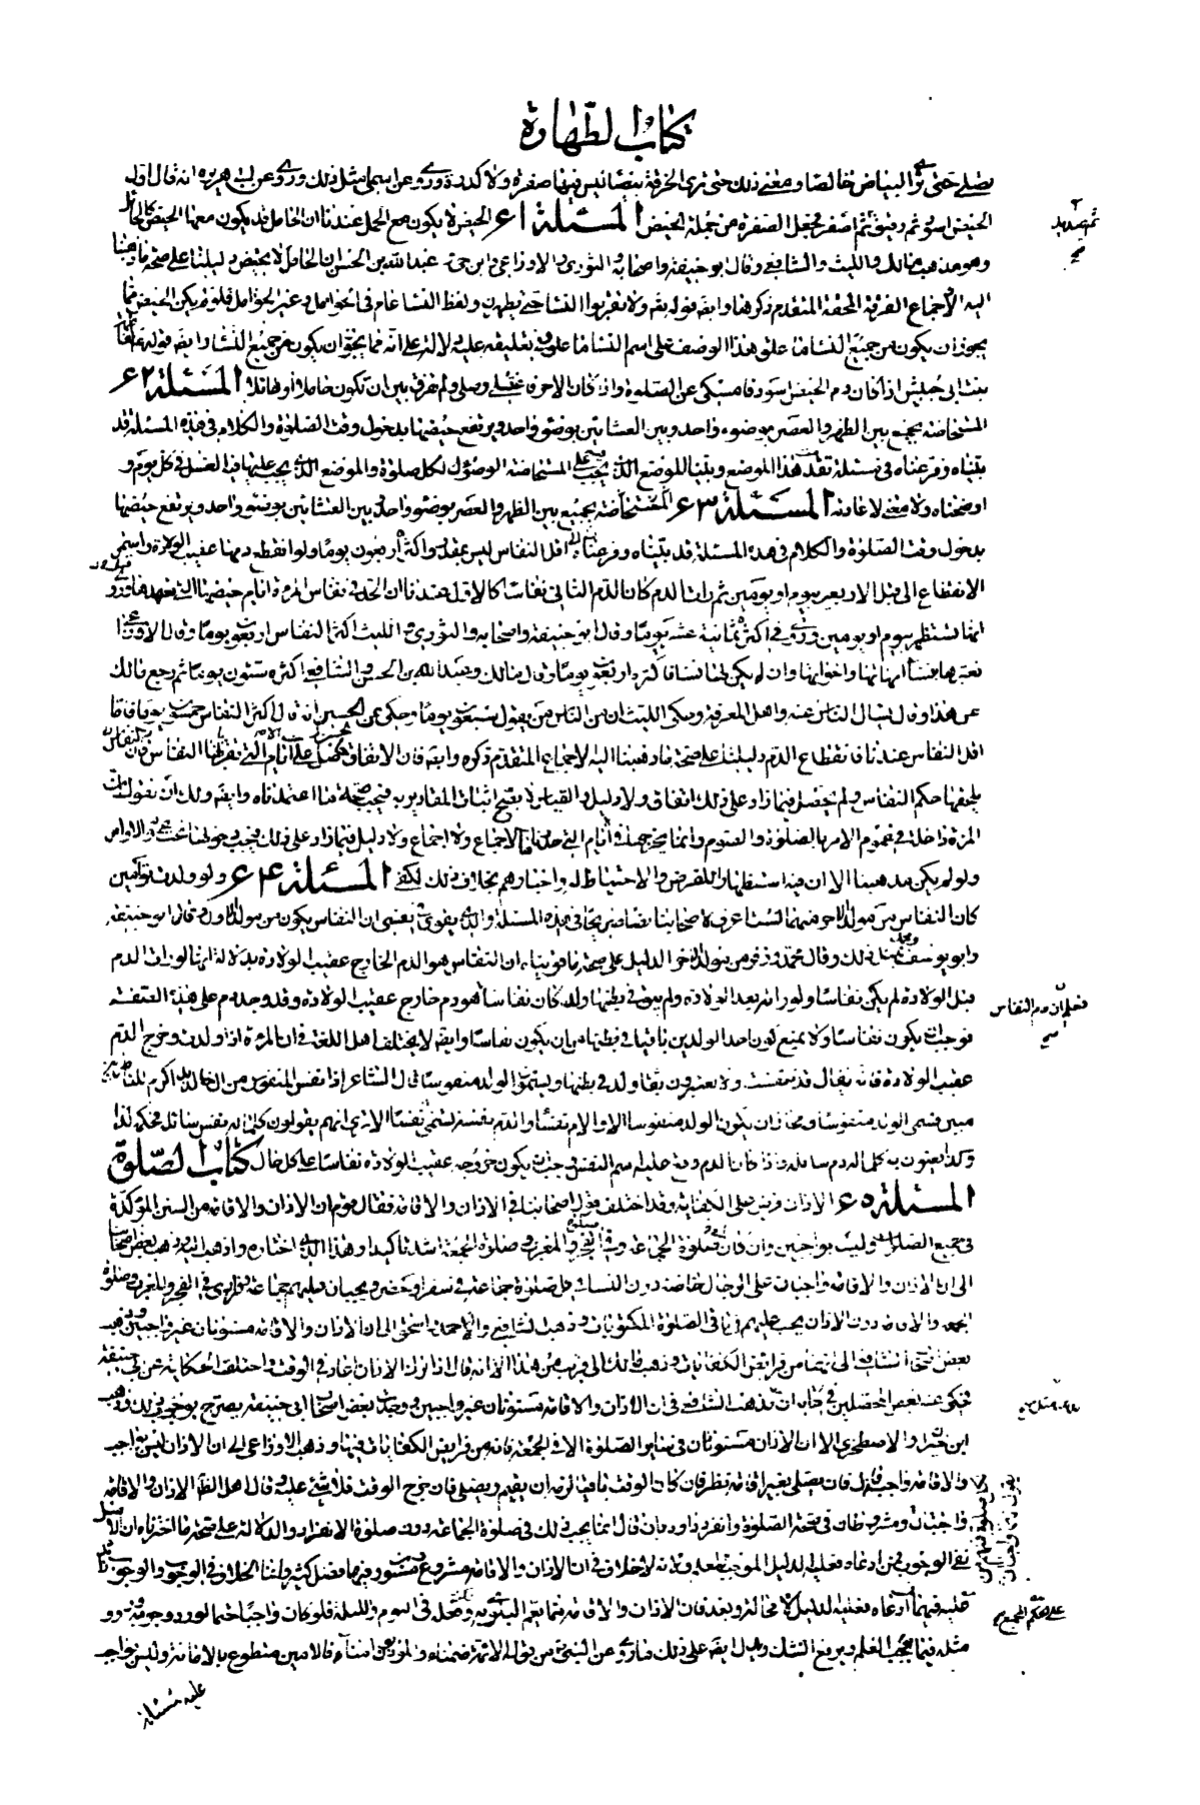 كتاب الطهارة
تصلي حتى ترى البياض خالصا ومعنى ذلك حتى ترى الخرقة بيضا ليس فيها صفرة ولا كدرة وروي عن اسمى مثل ذلك وروي عن ابي هريرة انه قال اول
الحيض اسود ثم رقيق ثم اصفر فجعل الصفرة من جملة الحيض المسئلة ٦١ الحيض لا يكون مع الحمل عندنا ان الحامل قد يكون معها الحيض كالحائل
وهو مذهب مالك والليث والشافعي وقال ابو حنيفة واصحابه والثوري والاوزاعي وابن حي وعبد الله بن الحسن ان الحامل لا تحيض دليلنا على صحة ما ذهبنا
اليه الاجماع الفرقة المحقة المتقدم ذكرها وايضه قوله ولا تقربوا النساء حتى يطهرن ولفظ النسا عام في الحوامل وغير الحوامل فلو لم يكن الحيض مما
يجوز ان يكون من جميع النساء ما علق هذا الوصف على اسم النسا وفي تعليقه عليه دلالة على انه مما يجوز ان يكون من جميع النسا وايضه قوله لفاطمة
بنت ابي حبيش اذا كان دم الحيض اسود فامسكي عن الصلوة واذا كان الاخر فاغتسلي وصلي ولم يفرق بين ان تكون حاملا او حائلا المسئلة ٦٢
المستحاضة تجمع بين الظهر والعصر بوضوء واحد وبين العشائين بوضوء واحد ويرتفع حيضها بدخول وقت الصلوة والكلام في هذه المسئلة قد
بيناه وفرغناه في مسئلة تقدمت هذا الموضع وبينا الموضع الذي يجب على المستحاضة الوضوء لكل صلوة والموضع الذي يجب عليها فيه الغسل في كل يوم و
اوضحناه ولا معنى لاعادته المسئلة ٦٣ المستحاضة تجميع بين الظهر والعصر بوضوء واحد وبين العشائين بوضوء واحد ويرتفع حيضها
بدخول وقت الصلوة والكلام في هذه المسئلة قد بيناه وفرغناه اقل النفاس ليس بمقدر واكثره اربعون يوما ولو انقطع دمها عقيب الولادة واستمر
الانقطاع الى قبل الاربعين بيوم او يومين ثم رات الدم كان الدم الثاني نفاسا كالاول عندنا ان الحد في نفاس المراة ايام حيضها التي تعهدها وروي
انها تستظهر بيوم او يومين وروي في اكثره ثمانية عشر يوما وقال ابو حنيفة واصحابه والثوري والليث اكثر النفاس اربعون يوما وقال الاوزاعي
تعتبرها بنسا امهاتها واخواتها وان لم يكن لها نسا فاكثره اربعون يوما وقال مالك وعبد الله بن الحسن والشافعي اكثره ستون يوما ثم رجع مالك
عن هذا وقال يسال الناس عنه واهل المعرفة وحكى الليث ان من الناس من يقول سبعون يوما وحكي عن الحسن انه قال اكثر النفاس خمسون يوما فاما
اقل النفاس عندنا فانقطاع الدم دليلنا على صحة ما ذهبنا اليه الاجماع المتقدم ذكره وايضه فان الاتفاق حاصل على ان ايام التي تقرها النفاس فان النفاس
يلحقها حكم النفاس ولم يحصل فيما زاد على ذلك اتفاق ولا دليل والقياس لا يصح اثبات المقادير به فيجب صحة ما اعتمدناه وايضه ولك ان تقول ان
المراة داخلة في عموم الامر بالصلوة والصوم وانما يخرجها في الايام التي حددناها الاجماع ولا اجماع ولا دليل فيما زاد على ذلك فيجب دخولها تحت عموم الاوامر
ولو لم يكن مذهبنا الا ان فيه استظهارا للفرض والاحتياط له واختارهم بخلاف ذلك لكفى المسئلة ٦٤ ولو ولدت توامين
كان النفاس من مولد الاخر منهما لست اعرف لاصحابنا نصا صريحا في هذه المسئلة والذي يقوى في نفسي ان النفاس يكون من مولد الاول وقال ابو حنيفة
وابو يوسف مثل ذلك وقال محمد وزفر من مولد الاخر الدليل على صحة ما قويناه ان النفاس هو الدم الخارج عقيب الولادة بدلالة انها لو رات الدم
قبل الولادة لم يكن نفاسا ولو راته بعد الولادة ولم يبق في بطنها ولد كان نفاسا لانه دم خارج عقيب الولادة وقد وجد دم على هذه الصفة
فوجب ان يكون نفاسا ولا يمنع كون احد الولدين باقيا في بطنها من ان يكون نفاسا وايضه لا يختلف اهل اللغة في ان المراة اذا ولدت وخرج الدم
عقيب الولادة فانه يقال قد نفست ولا يعتبرون بقاء ولد في بطنها ويسمون الولد منفوسا قال الشاعر اذا نفس المنفوس من اكرم
فسمى الولد منفوسا ومحال ان يكون الولد منفوسا الا والام نفسا والدم نفسه تسمى نفسا الا ترى انهم يقولون كلما له نفس سائلة فحكمه كذا
وكذا يعنون به كلما له دم سائلة واذا كان الدم وقع عليه اسم النفس وجب ان يكون خروجه عقيب الولادة نفاسا على كل حال كتاب الصلوة
المسئلة ٦٥ الاذان فرض على الكفاية وقد اختلف قول اصحابنا في الاذان والاقامة فقال قوم ان الاذان والاقامة من السنن المؤكدة
في جميع الصلوات وليسا بواجبين وان كان في صلوة الجماعة وفي الفجر والمغرب وصلوة الجمعة اشد تاكيدا وهذا الذي اختاره واذهب اليه وذهب بعض اصحابنا
الى ان الاذان والاقامة واجبات على الرجال خاصة دون النساء في كل صلوة جماعة في سفر او حضر ويجبان عليهم جماعة وفرادى في الفجر والمغرب وصلوة
الجمعة والاقامة دون الاذان تجب عليهم في باقي الصلوة المكتوبات وذهب الشافعي والاحمد واسحق الى ان الاذان والاقامة مسنونان غير واجبين وذهب
بعض اصحاب الشافعي الى انهما من فرايض الكفايات وذهب مالك الى قريب من هذا الا انه قال اذا ترك الاذان اعاد في الوقت واختلف الحكاية عن ابي حنيفة
فحكى عنه بعض المحصلين في كتابه انه يذهب الشافعي في ان الاذان والاقامة مسنونان غير واجبين ووجدت بعض اصحاب ابي حنيفة يصرح بوجوب ذلك وذهب
ابن خيران والاصطخري الا ان الاذان مسنونان في سائر الصلوة الا في الجمعة فانه من فرايض الكفايات فيها وذهب الاوزاعي الى ان الاذان ليس بواجب
والاقامة واجب فان صلى بغير اقامة نظر فان كان الوقت باقيا لزمه ان يقيم ويصلي فان خرج الوقت فلا شيء عليه وقال اهل الظاهر الاذان والاقامة
واجبتان ومشروطان في صحة الصلوة وانفرد داود بان قال انما يجب ذلك في صلوة الجماعة دون صلوة الانفراد والدلالة على صحة ما اخترناه ان الاصل
نفي الوجوب فمن ادعاه فعليه الدليل الموجب للعلم ولانه لا خلاف في ان الاذان والاقامة مشروع مسنون وفيهما فضل كثير وانما الخلاف في الوجوب والوجوب زائد
فيهما فمن ادعاه فعليه الدليل لا محالة وبعد فان الاذان والاقامة مما يعم البلوى به وفعله في اليوم والليلة فلو كان واجبا حتما لورد وجوبه ورود
مثله فيما يوجب العلم ويرفع الشك ويدل ايضه على ذلك ما روي عن النبي من قوله الائمة ضمناء والمؤذنون امناء فالامين متطوع بالاقامة وليس بواجب
عليه